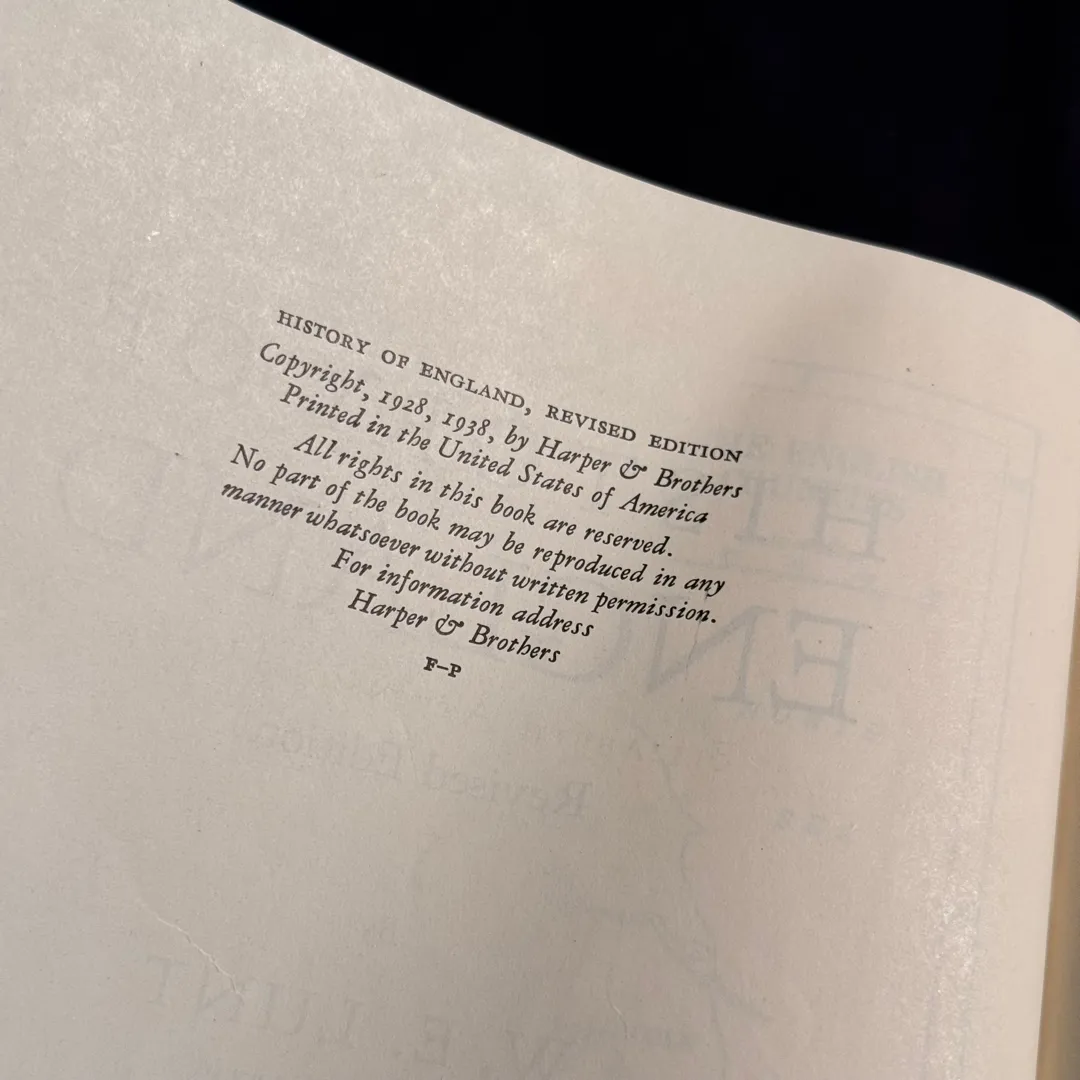 HISTORY OF ENGLAND, REVISED EDITION
Copyright, 1928, 1938, by Harper & Brothers
Printed in the United States of America
All rights in this book are reserved.
No part of the book may be reproduced in any
manner whatsoever without written permission.
For information address
Harper & Brothers
F–P
Revised Edition
W. E. LUNT